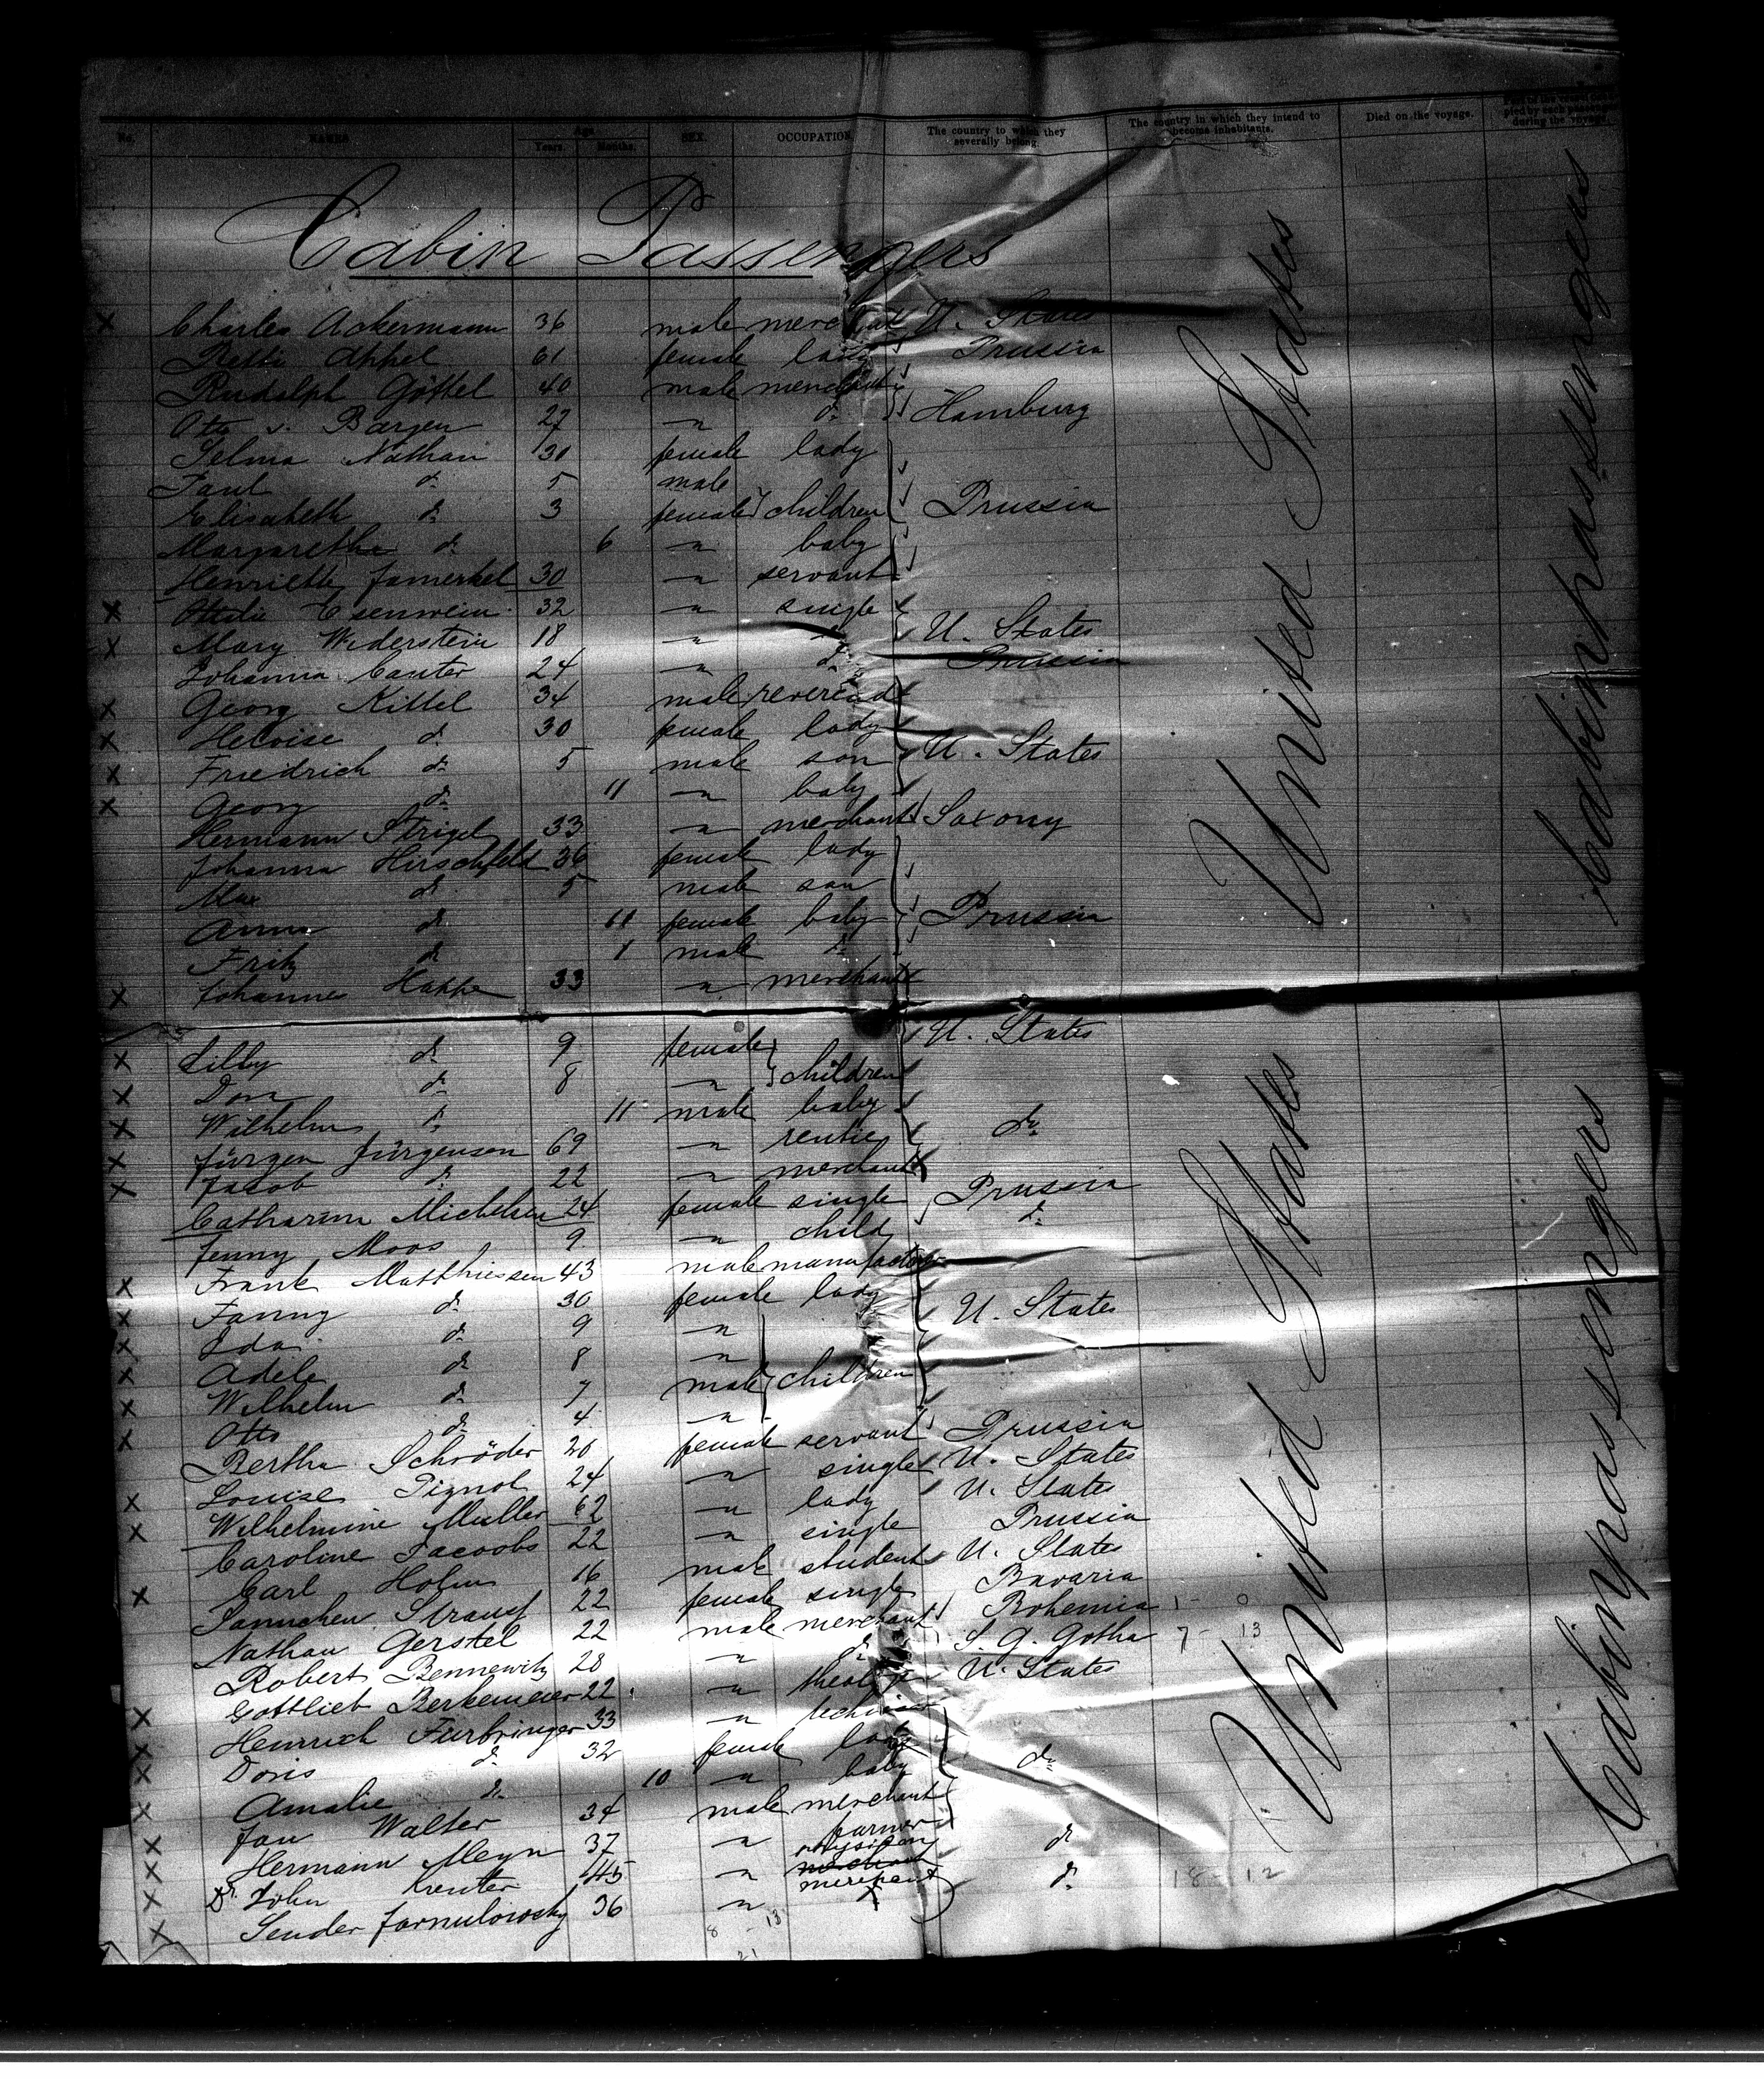 No. NAMES Age Years. Months. SEX. OCCUPATION. The country to which they severally belong. The country in which they intend to become inhabitants. Died on the voyage. during the voyage.
Cabin Passengers
x Charles Ackermann 36 male merchant U. States
Appel 61 female lady Prussia
Rudolph Göttel 40 male merchant
Otto v. Bargen 27 " do Hamburg
Selma Nathan 30 female lady
Paul do 5 male
Elisabeth do 3 female children Prussia
Margarethe do 6 " baby
Henriette 30 " servant
x Ottilie Esenwein 32 " single
x Mary Widerstein 18 " do U. States
Johanna Canter 24 " do Prussia
x Georg Kittel 34 male reverend
x Heloise do 30 female lady
x Friedrich do 5 male son U. States
x Georg do 11 " baby
Hermann Strigel 33 " merchant Saxony
Johanna Hirschfeld 36 female lady
Max do 5 male son
Anna do 11 female baby Prussia
Fritz do 1 male do
x Johannes 33 " merchant
x Lilly do 9 female U. States
x Dora do 8 " children
x Wilhelm do 11 male baby
x Jürgen Jürgensen 69 " rentier do
x Jacob do 22 " merchant
Catharina Michelsen 24 female single Prussia
Jenny Moos 9 " child do
x Frank Matthiessen 43 male manufacturer
x Fanny do 30 female lady
x Ida do 9 " U. States
x Adele do 8 "
x Wilhelm do 7 male children
x Otto do 4 "
Bertha Schröder 20 female servant Prussia
x Louise Pignol 24 " single U. States
x Wilhelmine Muller 62 " lady U. States
Caroline Jacoobs 22 " single Prussia
x Carl Holm 16 male student U. States
Sannchen Strauss 22 female single Bavaria
Nathan Gerstel 22 male merchant Bohemia 1 - 0
Robert Bennewitz 28 " do S. G. Gotha 7 - 13
x Gottlieb Berkemeier 22 " U. States
x Heinrich Furbringer 33 "
x Doris do 32 female lady
x Amalie do 10 " baby do
x Jan Walter 34 male merchant
x Hermann Meyn 37 " farmer do
x Dr. John Kreuter 45 " physician do 18 - 12
x Sender Jarmulowsky 36 " merchant
8 - 13
21
United States
United States
Cabinpassengers
Cabinpassengers